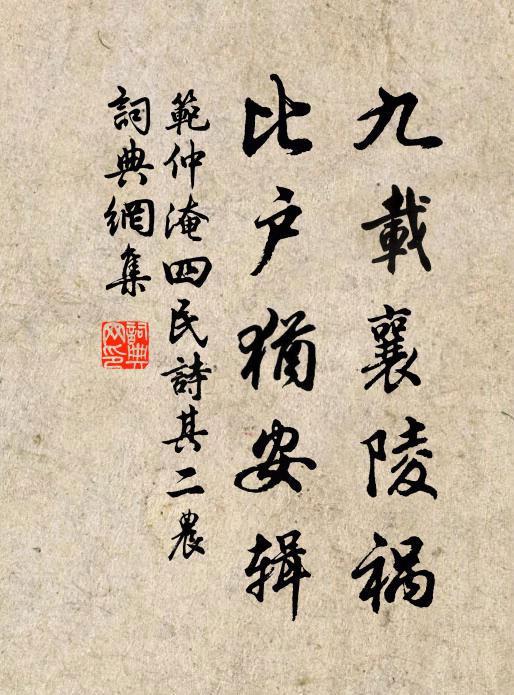 九載襄陵禍
比户猶安輯
範仲淹四民詩其二農
詞典網集
詞典網印